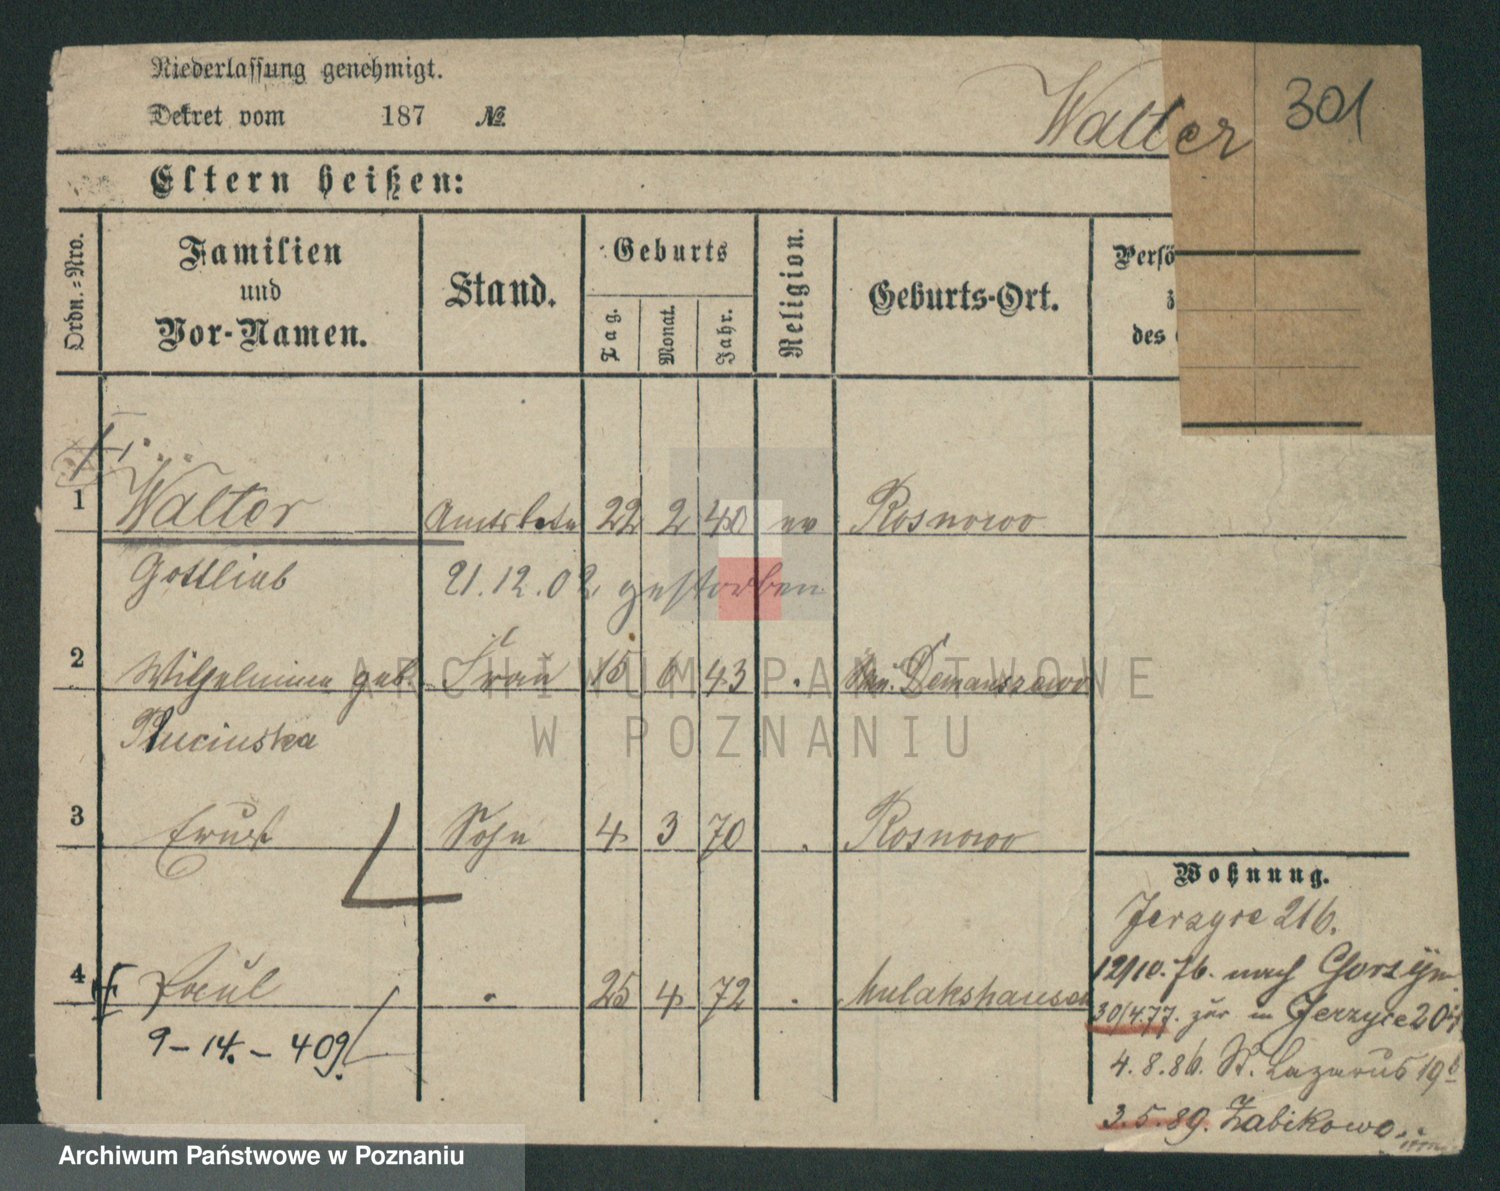 Niederlassung genehmigt.
Dekret vom 187 №
Walter
301
Eltern heißen:
Ordn.=Nro.
Familien
und
Vor-Namen.
Stand.
Geburts
Tag.
Monat.
Jahr.
Religion.
Geburts-Ort.
Persö
z
des
1 Walter 22 2 40 ev Rosnowo
Gottlieb 21.12.02 gestorben
2 Wilhelmine geb. Frau 15 6 43 . Demanszewo
Rucinska
3 Ernst Sohn 4 3 70 . Rosnowo
Wohnung.
Jerzyce 216.
4 Paul . 25 4 72 . Mulakshausen
12/10.76. nach Gorszyn
30/4.77. zur in Jerzyce
9-14.-409.
4.8.86. St. Lazarus 19b
3.5.89. Zabikowo.
ARCHIWUM PAŃSTWOWE
W POZNANIU
Archiwum Państwowe w Poznaniu